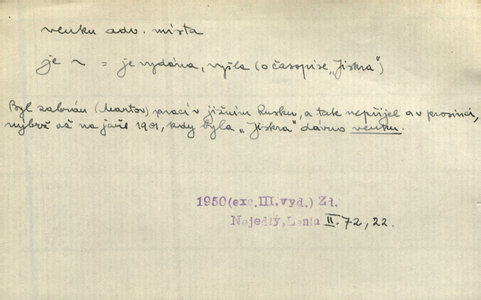 venku adv. místa
je ~ = je vydána, vyšla (o časopise „Jiskra")
Byl zabrán (Martov) prací v jižním Rusku, a tak nepřijel a v prosinci,
nýbrž až na jaře 1901, kdy byla „Jiskra" dávno venku.
1950(exc.III.vyd.) Zd.
Nejedlý, Lenin II. 72, 22.